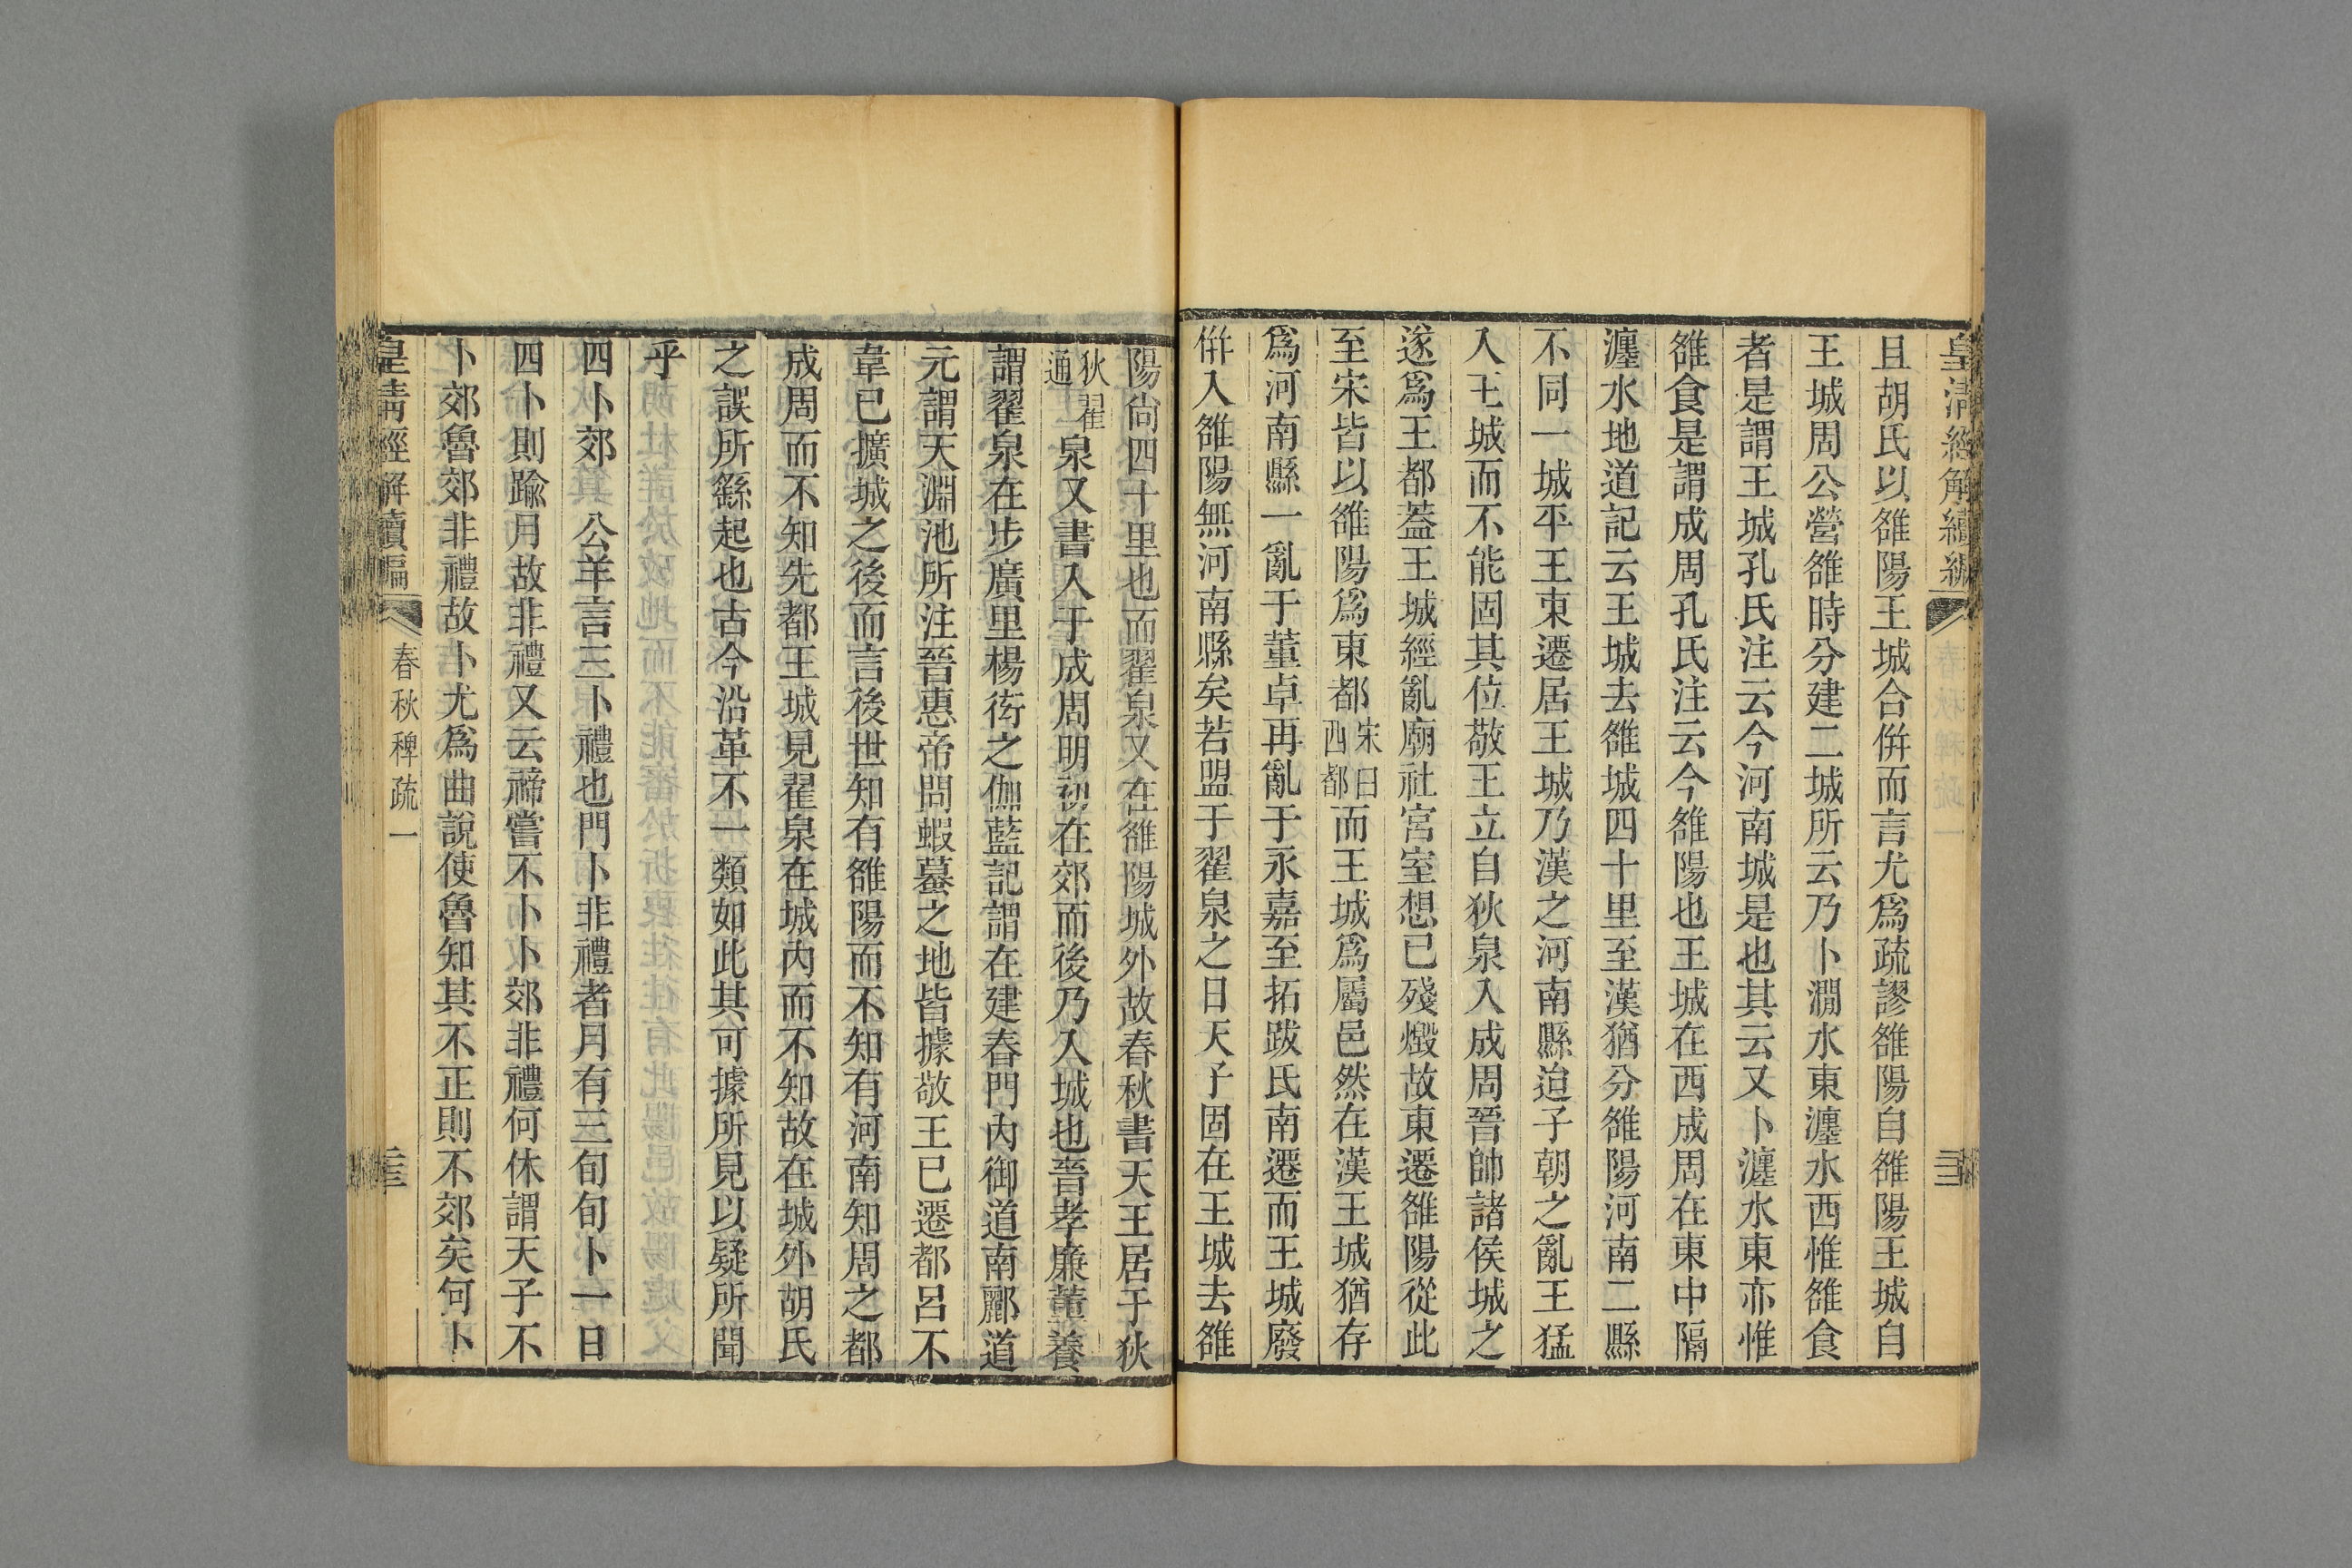 皇清經解續編
且胡氏以雒陽王城合倂而言尤爲疏謬雒陽自雒陽王城自
王城周公營雒時分建二城所云乃卜澗水東瀍水西惟雒食
者是謂王城孔氏注云今河南城是也其云又卜瀍水東亦惟
雒食是謂成周孔氏注云今雒陽也王城在西成周在東中隔
瀍水地道記云王城去雒城四十里至漢猶分雒陽河南二縣
不同一城平王東遷居王城乃漢之河南縣迨子朝之亂王猛
入王城而不能固其位敬王立自狄泉入成周晉帥諸侯城之
遂爲王都蓋王城經亂廟社宮室想已殘燬故東遷雒陽從此
至宋皆以雒陽爲東都宋曰西都而王城爲屬邑然在漢王城猶存
爲河南縣一亂于董卓再亂于永嘉至拓跋氏南遷而王城廢
倂入雒陽無河南縣矣若盟于翟泉之日天子固在王城去雒
陽尙四十里也而翟泉又在雒陽城外故春秋書天王居于狄
狄翟通泉又書入于成周明初在郊而後乃入城也晉孝廉董養
謂翟泉在步廣里楊衒之伽藍記謂在建春門內御道南酈道
元謂天淵池所注晉惠帝問蝦蟇之地皆據敬王已遷都呂不
韋已擴城之後而言後世知有雒陽而不知有河南知周之都
成周而不知先都王城見翟泉在城內而不知故在城外胡氏
之誤所繇起也古今沿革不一類如此其可據所見以疑所聞
乎
四卜郊 公羊言三卜禮也門卜非禮者月有三旬旬卜一日
四卜則踰月故非禮又云禘嘗不卜卜郊非禮何休謂天子不
卜郊魯郊非禮故卜尤爲曲說使魯知其不正則不郊矣何卜
皇淸經解續編
春秋稗疏一